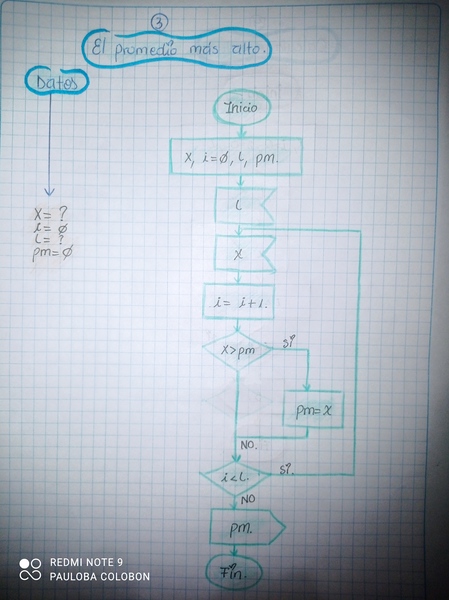 3
El promedio más alto.
Datos
x = ?
i = ø
L = ?
pm = ø
Inicio
x, i=ø, L, pm.
L
x
i= i+1.
x>pm
Sí
pm=x
NO.
i<L.
Sí.
NO
pm.
Fin.
REDMI NOTE 9
PAULOBA COLOBON